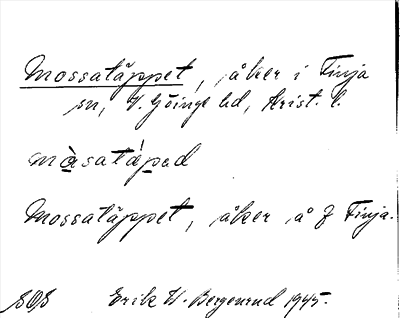 Mossatäppet, åker i Finja
sn, V. Göinge hd, Krist. l.
màsatápad
Mossatäppet, åker å 7 Finja.
Erik W. Bergenrud 1945.